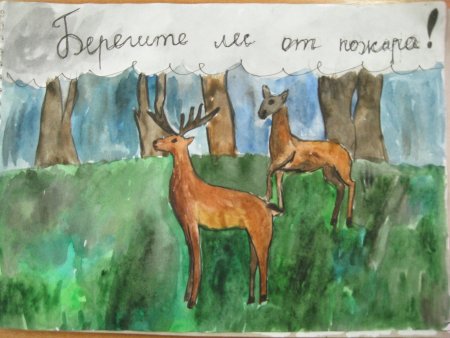 Берегите лес от пожара!